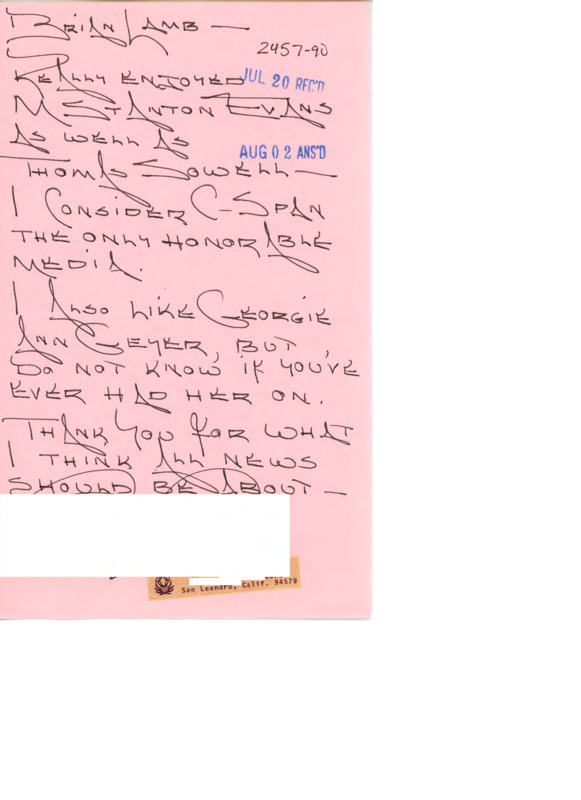 BRIAN LAMB —
2457-90
REALLY ENJOYED JUL 20 REC'D
M STANTON EVANS
AS WELL AS
AUG 02 ANS'D
THOMAS SOWELL —
I CONSIDER C-SPAN
THE ONLY HONORABLE
MEDIA.
I ALSO LIKE GEORGIE
ANN GEYER, BUT,
DO NOT KNOW IF YOU'VE
EVER HAD HER ON.
THANK YOU FOR WHAT
I THINK ALL NEWS
SHOULD BE ABOUT —
San Leandro, Calif. 94579